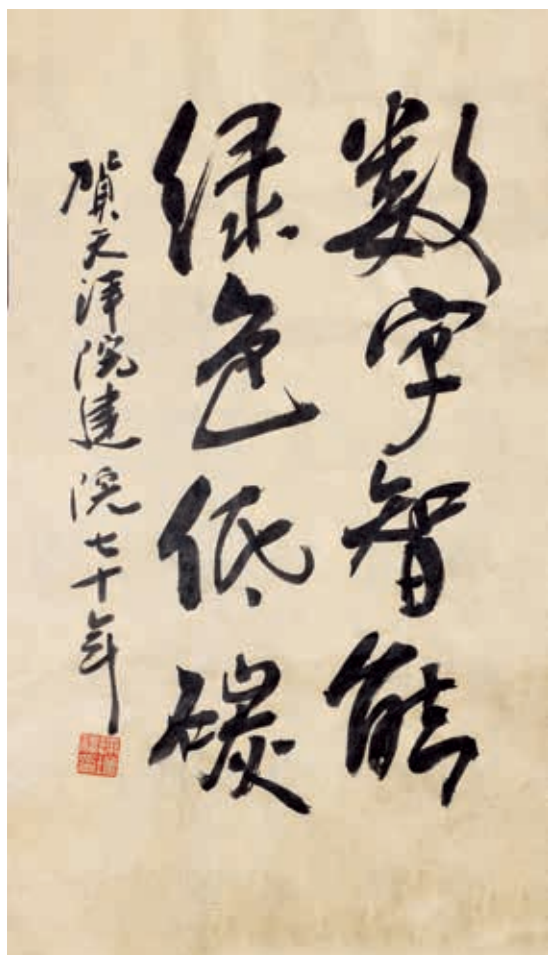 数字智能
绿色低碳
贺天津院建院七十年